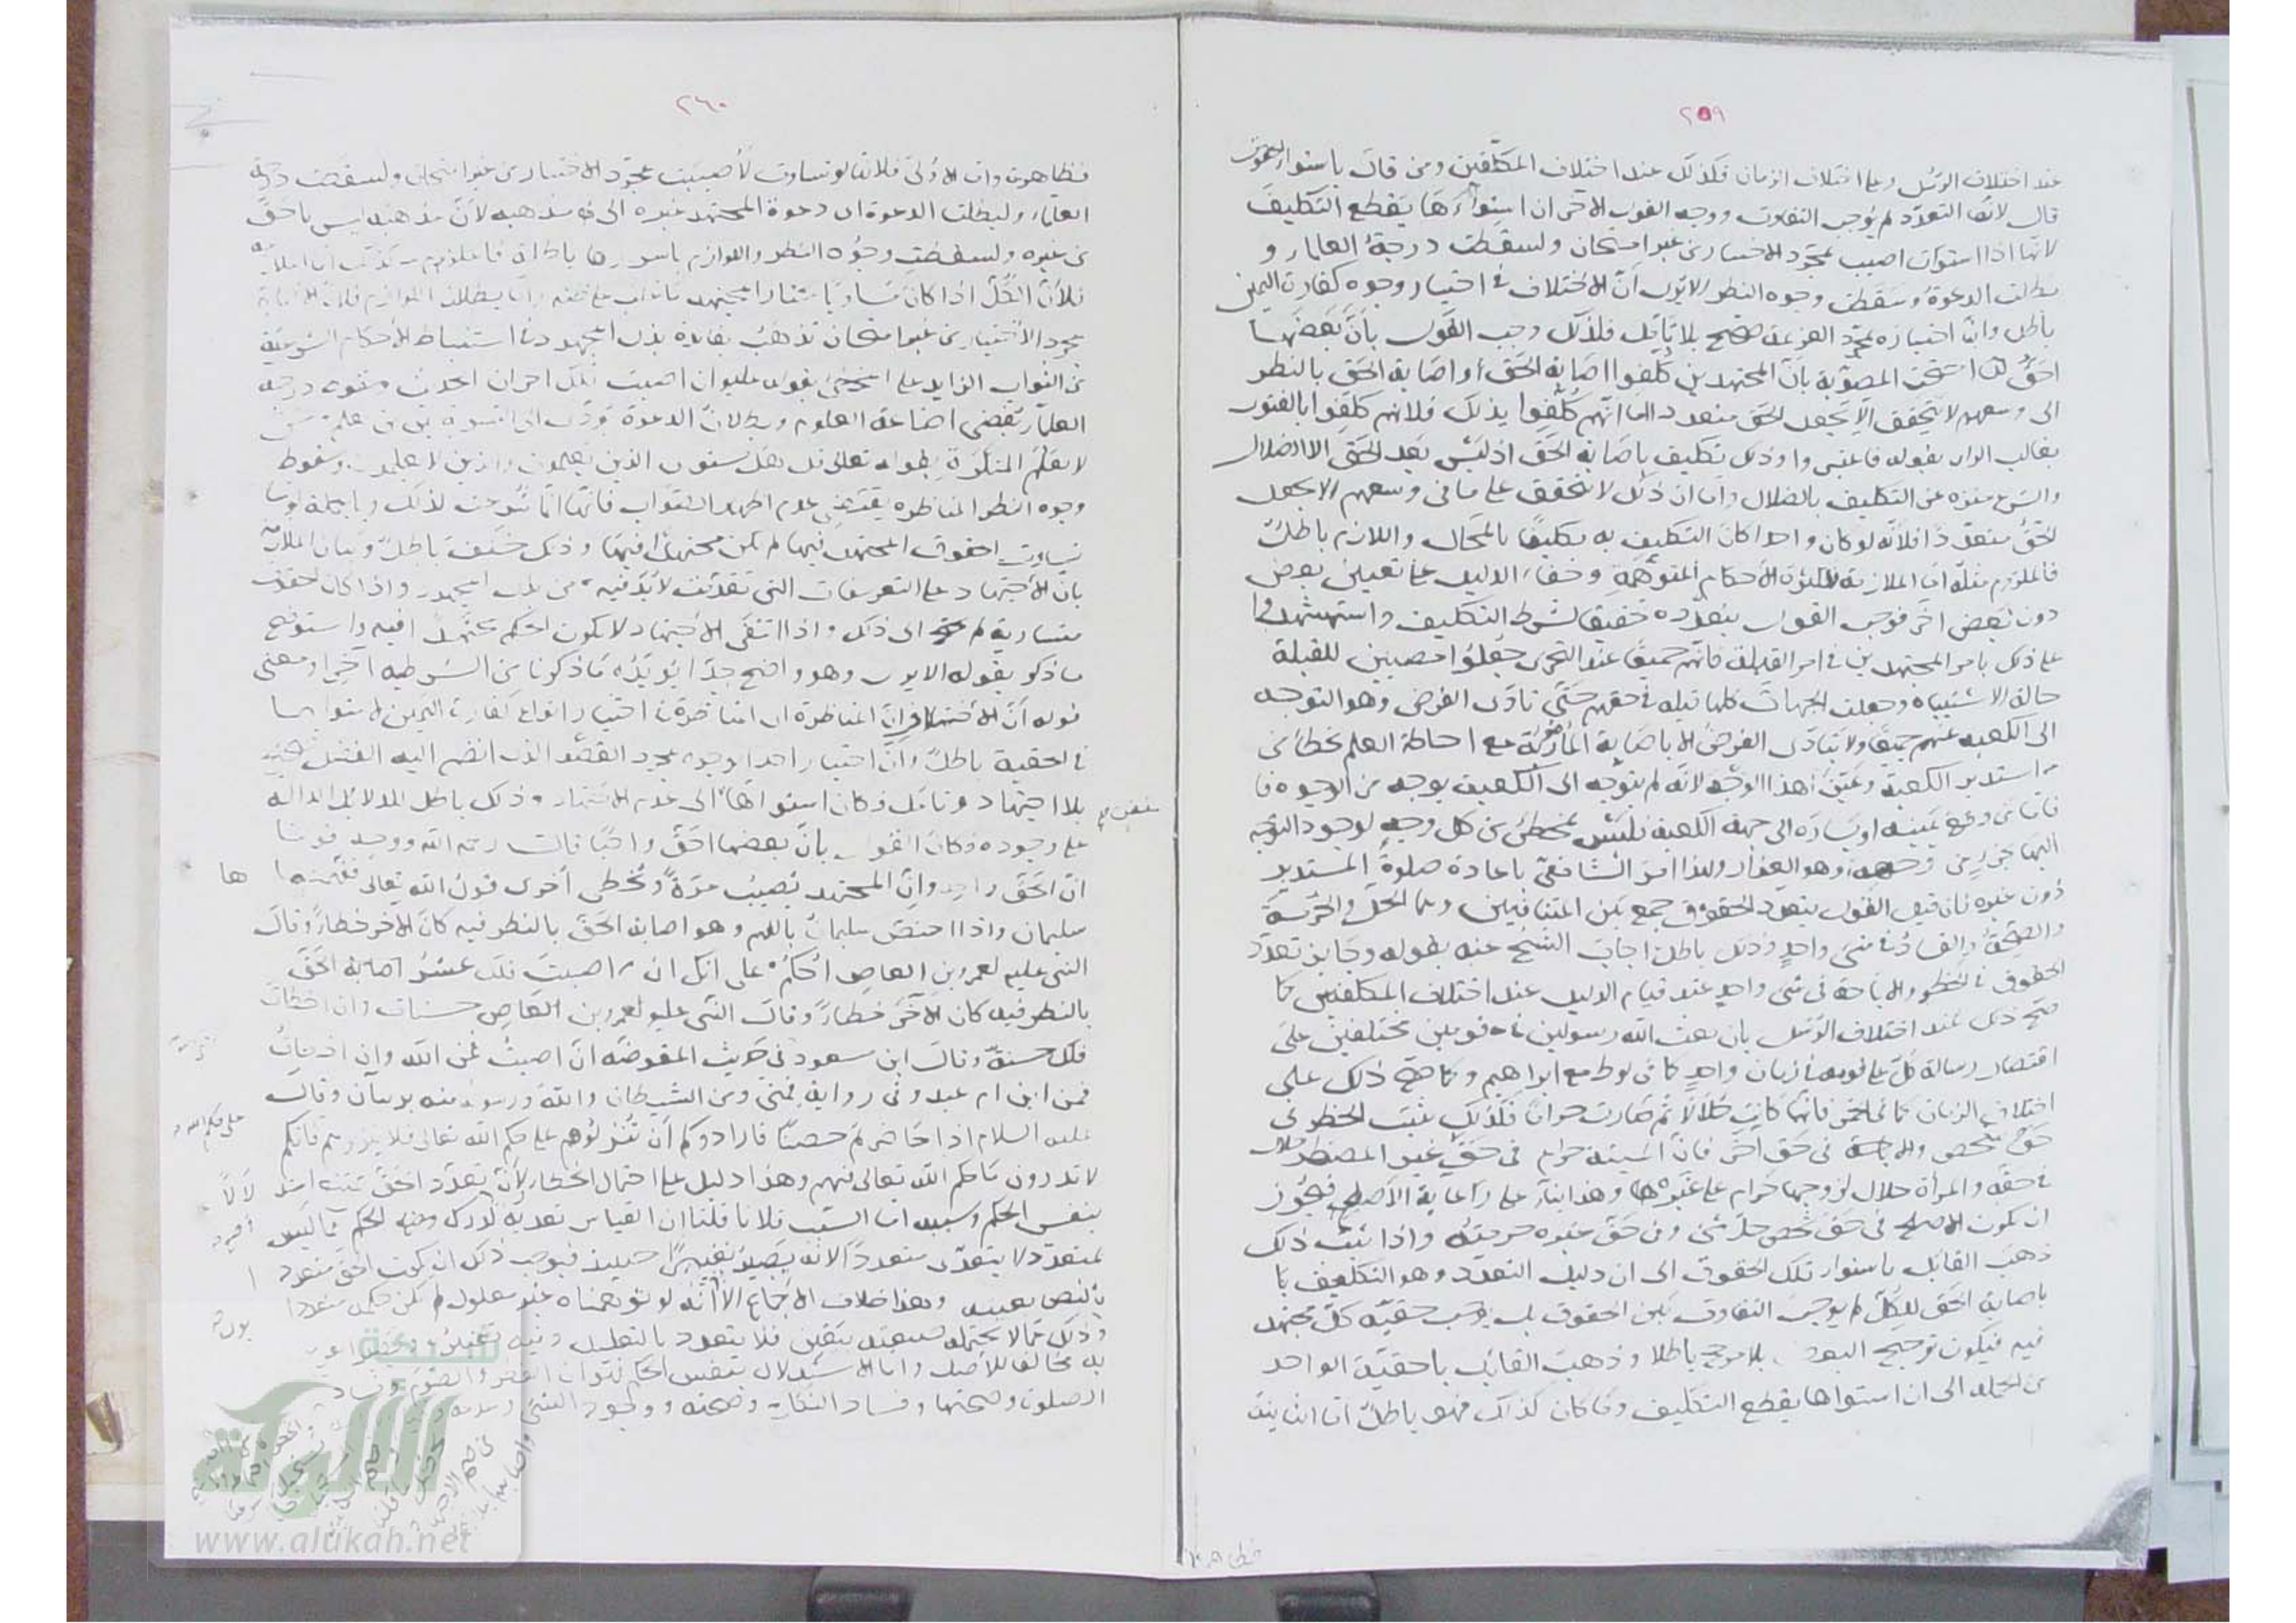 ٢٥٩
عند اختلاف الرسل وعلى اختلاف الزمان فكذلك عند اختلاف المكلفين ومن قال باستواء الحقوق
قال لان التعدد لم يوجب التفاوت ووجه القول الاخر ان استواءها يقطع التكليف
لانها اذا استوت اصيب بمجرد الاختيار من غير امتحان ولسقطت درجة العلماء و
بطلت الدعوة وسقطت وجوه النظر الا يرى ان الاختلاف في اختيار وجوه كفارة اليمين
باطل وان اختياره بمجرد العزيمة صحيح بلا تأمل فلذلك وجب القول بأن بعضها
احق احتجت المصوبة بأن المجتهدين كلفوا اصابة الحق أو اصابة الحق بالنظر
الى وسعهم لا يتحقق الا بجعل الحق متعددا اما انهم كلفوا بذلك فلانهم كلفوا بالفتوى
بغالب الرأى بقوله فاعتبروا وذلك تكليف باصابة الحق اذ ليس بعد الحق الا الضلال
والشرع منزه عن التكليف بالضلال واما ان ذلك لا يتحقق على ما في وسعهم الا بجعل
الحق متعددا فلأنه لو كان واحدا كان التكليف به تكليفا بالمحال واللازم باطل
فالملزوم مثله اما الملازمة فلكثرة الأحكام المتوهمة وخفاء الدليل على تعيين بعض
دون بعض اخر فوجب القول بتعدده تحقيقا لشرط التكليف واستشهدوا
على ذلك بامر المجتهدين في امر القبلة فانهم جميعا عند التحرى جعلوا مصيبين للقبلة
حالة الاشتباه وجعلت الجهات كلها قبلة في حقهم حتى تأدى الفرض وهو التوجه
الى الكعبة عنهم جميعا ولا يتأدى الفرض الا باصابة المأمور به مع احاطة العلم بخطأ من
استدبر الكعبة وعين هذا الوجه لأنه لم يتوجه الى الكعبة بوجه من الوجوه فا
فاما من وقع يمينه او يساره الى جهة الكعبة فليس بمخطئ من كل وجه لوجود التوجه
اليها بجزء من وجهه وهو العذار ولهذا امر الشافعى باعادة صلوة المستدبر
دون غيره فان قيل القول بتعدد الحقوق جمع بين المتنافيين وهما الحل والحرمة
والصحة والفساد في شئ واحد وذلك باطل اجاب الشيخ عنه بقوله وجايز تعدد
الحقوق في الحظر والاباحة في شئ واحد عند قيام الدليل عند اختلاف المكلفين كما
صح ذلك عند اختلاف الرسل بان بعث الله رسولين في قومين مختلفين على
اقتصار رسالة كل على قومه في زمان واحد كما في لوط مع ابراهيم وكما صح ذلك على
اختلاف الزمان كما في الخمر فانها كانت حلالا ثم صارت حراما فكذلك يثبت الحظر في
حق شخص والاباحة في حق اخر فان الميتة حرام في حق غير المضطر حلال
في حقه والمرأة حلال لزوجها حرام على غيره وهذا بناء على رعاية الأصلح فيجوز
ان يكون الاصلح في حق شخص حل شئ وفي حق غيره حرمته واذا ثبت ذلك
ذهب القائل باستواء تلك الحقوق الى ان دليل التعدد وهو التكليف با
باصابة الحق للكل لم يوجب التفاوت بين الحقوق بل يوجب حقية كل مجتهد
فيه فيكون ترجيح البعض بلا مرجح باطلا وذهب القائل باحقية الواحد
من الجملة الى ان استواها يقطع التكليف وما كان كذلك فهو باطل اما الثانية
٢٦٠
فظاهرة واما الاولى فلانها لو تساوت لأصيبت بمجرد الاختيار من غير امتحان ولسقطت درجة
العلماء ولبطلت الدعوة اى دعوة المجتهد غيره الى مذهبه لأن مذهبه ليس باحق
من غيره ولسقطت وجوه النظر واللوازم باسرها باطلة فالملزوم كذلك اما الملازمة
فلأن الكل اذا كان متساويا
بمجرد الاختيار من غير امتحان تذهب بفائدة بذل المجهود في استنباط الأحكام الشرعية
من الثواب الزايد على المخطئ بقوله عليه ان اصبت فلك اجران الحديث وسقوط درجة
العلماء يقتضى اضاعة العلوم وبطلان الدعوة يؤدى الى التسوية بين من علم وبين من
لا يعلم المنكرة بقوله تعالى قل هل يستوى الذين يعلمون والذين لا يعلمون وسقوط
وجوه النظر المناظرة يقتضى عدم اظهار الصواب فانها انما شرعت لذلك وبالجملة لو
تساوت الحقوق المجتهد فيها لم تكن مجتهدا فيها وذلك خلف باطل وبيان الملازمة
بان الاجتهاد على التعريفات التي تقدمت لابد فيه من بذل المجهود واذا كان الحقوق
متساوية لم يحتج الى ذلك واذا انتفى الاجتهاد لا يكون الحكم مجتهدا فيه واستوضح
ما ذكر بقوله الا يرى وهو واضح جدا يؤيده ما ذكرنا من الشرطية اخيرا ومعنى
قوله أن الاختلاف ان المناظرة اى المناظرة في اختيار انواع كفارة اليمين لاستوائها
في الحقية باطل وأن اختيار احدا لوجوه بمجرد القصد الذى انضم اليه الفعل صحيح
بلا اجتهاد وتأمل وكان استواؤها الى عدم الاجتهاد وذلك باطل للدلائل الدالة
على وجوده فكان القول بان بعضها احق واجبا قال رحمه الله ووجه قولنا
ان الحق واحد وان المجتهد يصيب مرة ويخطى أخرى قول الله تعالى ففهمنها
ها
سليمان واذا اختص سليمان بالفهم وهو اصابة الحق بالنظر فيه كان الاخر خطاء وقال
النبى عليه لعمرو بن العاص أحكم على انك ان اصبت فلك عشر اصابة الحق
بالنظر فيه كان الآخر خطاء وقال النبى عليه لعمرو بن العاص حسنات وان اخطات
فلك حسنة وقال ابن مسعود في حديث المفوضة ان اصبت فمن الله وان اخطأت
فمن ابن ام عبد وفي رواية فمنى ومن الشيطان والله ورسوله منه بريئان وقال
عليه السلام اذا حاصرتم حصنا فارادوكم أن تنزلوهم على حكم الله تعالى فلا تنزلوهم فانكم
لا تدرون ما حكم الله تعالى فيهم وهذا دليل على احتمال الخطاء لأن تعدد الحق
بنفس الحكم وسببه اما السبب فلانا قلنا ان القياس تعدية
لمتعدد لا يتعدى متعددا لانه يصير تغييرا حينئذ فيوجب ذلك ان يكون الحق متعددا
بالنص بعينه وهذا خلاف الاجماع الا أنه لو توهمناه غير معلول لم يكن حكمه متعددا
وذلك مما لا يحتمله بيقين فلا يتعدد بالتعليل وفيه تغييره
مخالفا للأصل واما الاستدلال بنفس الحكم فهو ان الفطر والصوم وفساد
الصلوة وصحتها وفساد النكاح وصحته ووجود الشئ وعدمه
الألوكة
www.alukah.net